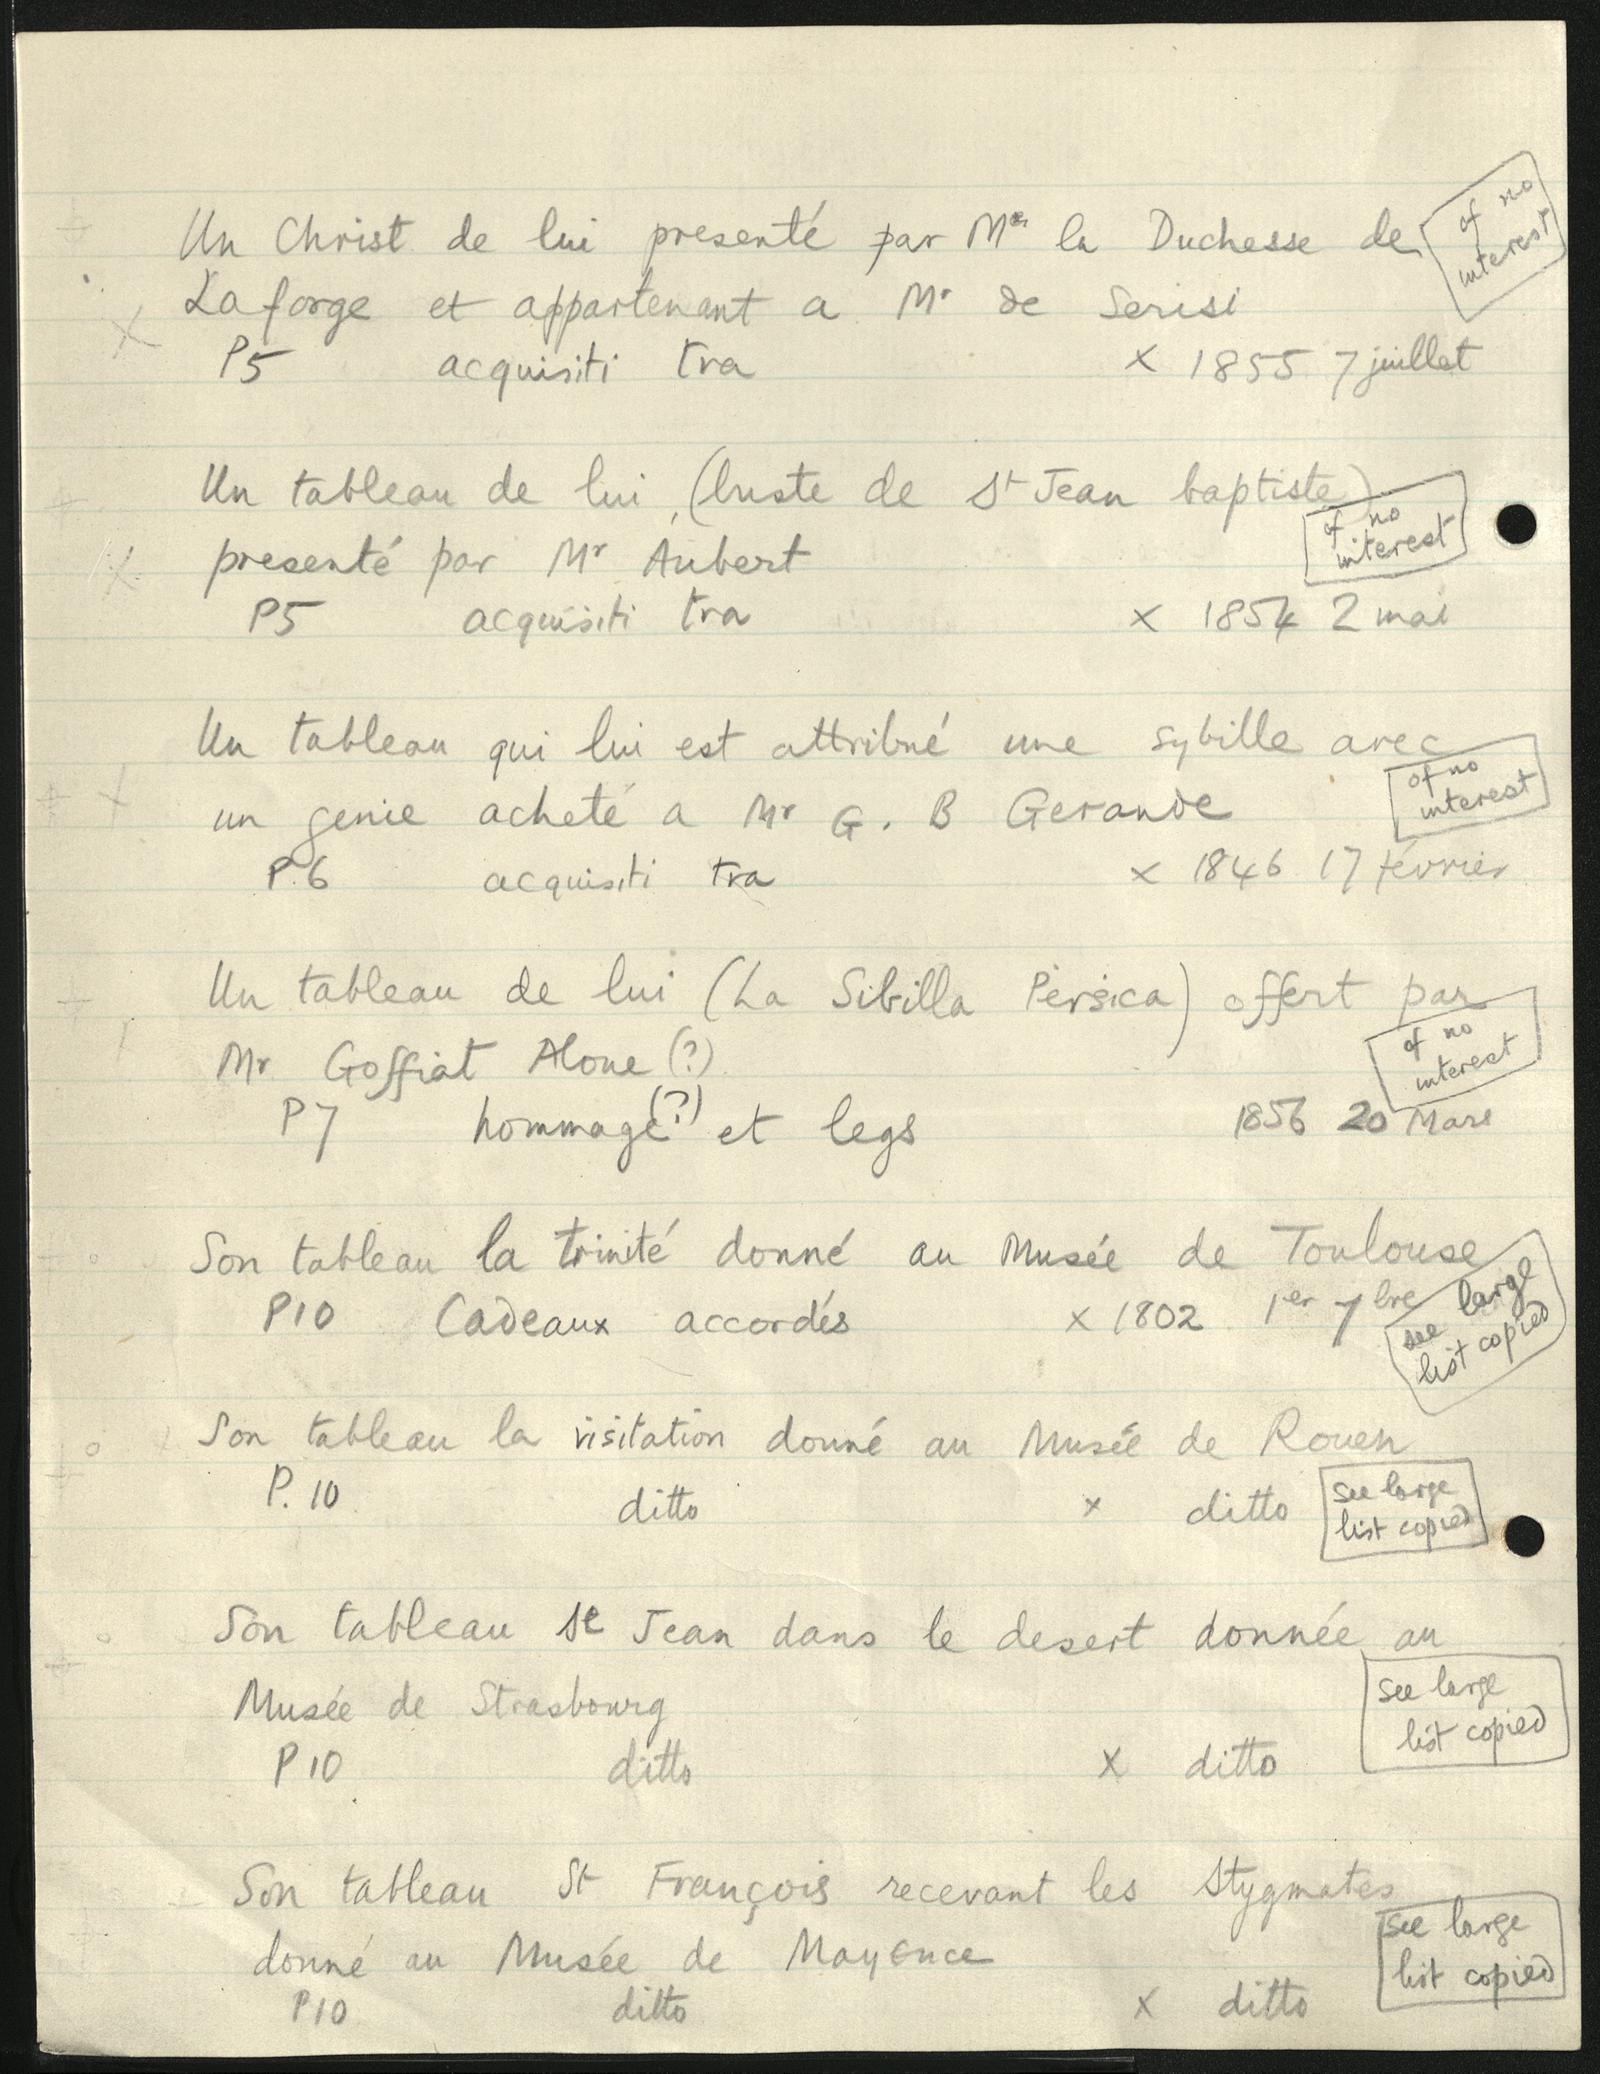 Un Christ de lui presenté par Me la Duchesse de
Laforge et appartenant a Mr de Serisi
of no
interest
P5 acquisiti tra x 1855 7 juillet
Un tableau de lui, (buste de St Jean baptiste)
presenté par Mr Aubert
of no
interest
P5 acquisiti tra x 1854 2 mai
Un tableau qui lui est attribué une sybille avec
un genie acheté a Mr G. B Gerande
of no
interest
P.6 acquisiti tra x 1846 17 février
Un tableau de lui (La Sibilla Persica) offert par
Mr Goffiat Alone (?)
of no
interest
P7 hommage (?) et legs 1856 20 Mars
Son tableau la trinité donné au Musée de Toulouse
P10 Cadeaux accordés x 1802 1er 7bre
see large
list copied
Son tableau la visitation donné au Musée de Rouen
P. 10 ditto x ditto
see large
list copied
Son tableau St Jean dans le desert donnée au
Musée de Strasbourg
see large
list copied
P10 ditto x ditto
Son tableau St François recevant les Stygmates
donné au Musée de Mayence
see large
list copied
P10 ditto x ditto